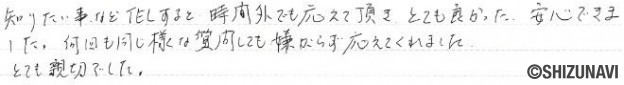 知りたい事など伝しすると 時間外でも応えて頂き とても良かった. 安心できま
した. 何回も同じ様な質問しても嫌がらず応えてくれました.
とても親切でした.
©SHIZUNAVI